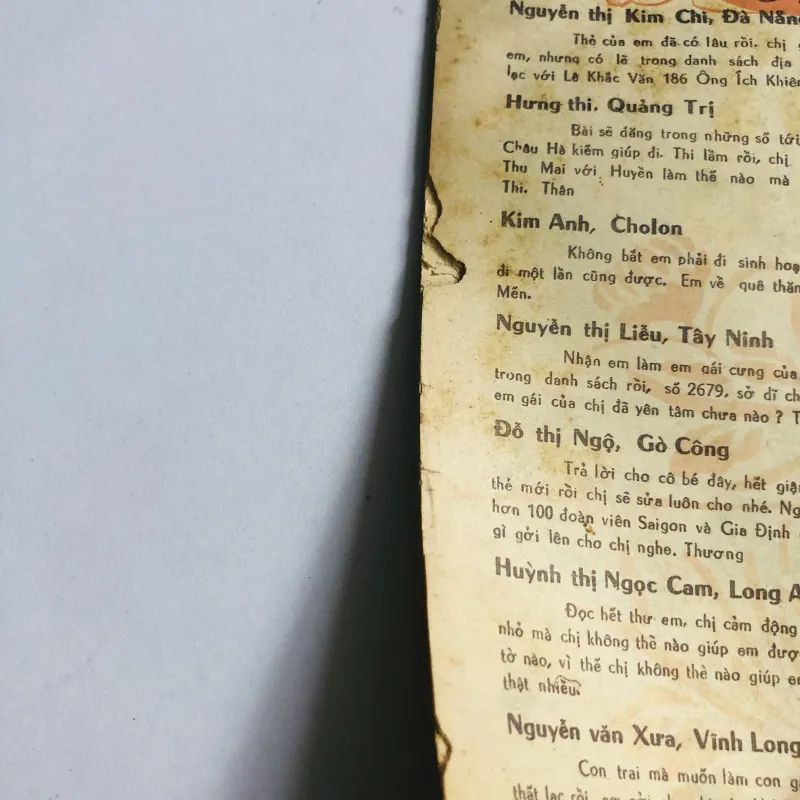 Nguyễn thị Kim Chi, Đà Nẵng
Thẻ của em đã có lâu rồi. chị
em, nhưng có lẽ trong danh sách địa
lạc với Lê Khắc Văn 186 Ông Ích Khiêm
Hưng thi. Quảng Trị
Bài sẽ đăng trong những số tới,
Châu Hà kiếm giúp đi. Thi lầm rồi, chị
Thu Mai với Huyền làm thế nào mà
Thi. Thân
Kim Anh, Cholon
Không bắt em phải đi sinh hoạ
đi một lần cũng được. Em về quê thăm
Mến.
Nguyễn thị Liễu, Tây Ninh
Nhận em làm em gái cưng của
trong danh sách rồi, số 2679, sở dĩ ch
em gái của chị đã yên tâm chưa nào ? T
Đỗ thị Ngộ, Gò Công
Trả lời cho cô bé đây, hết giận
thẻ mới rồi chị sẽ sửa luôn cho nhé. Ng
hơn 100 đoàn viên Saigon và Gia Định
gì gởi lên cho chị nghe. Thương
Huỳnh thị Ngọc Cam, Long A
Đọc hết thư em, chị cảm động
nhỏ mà chị không thể nào giúp em đượ
tờ nào, vì thế chị không thể nào giúp em
thật nhiều.
Nguyễn văn Xưa, Vĩnh Long
Con trai mà muốn làm con g
thất lạc rồi, em gởi